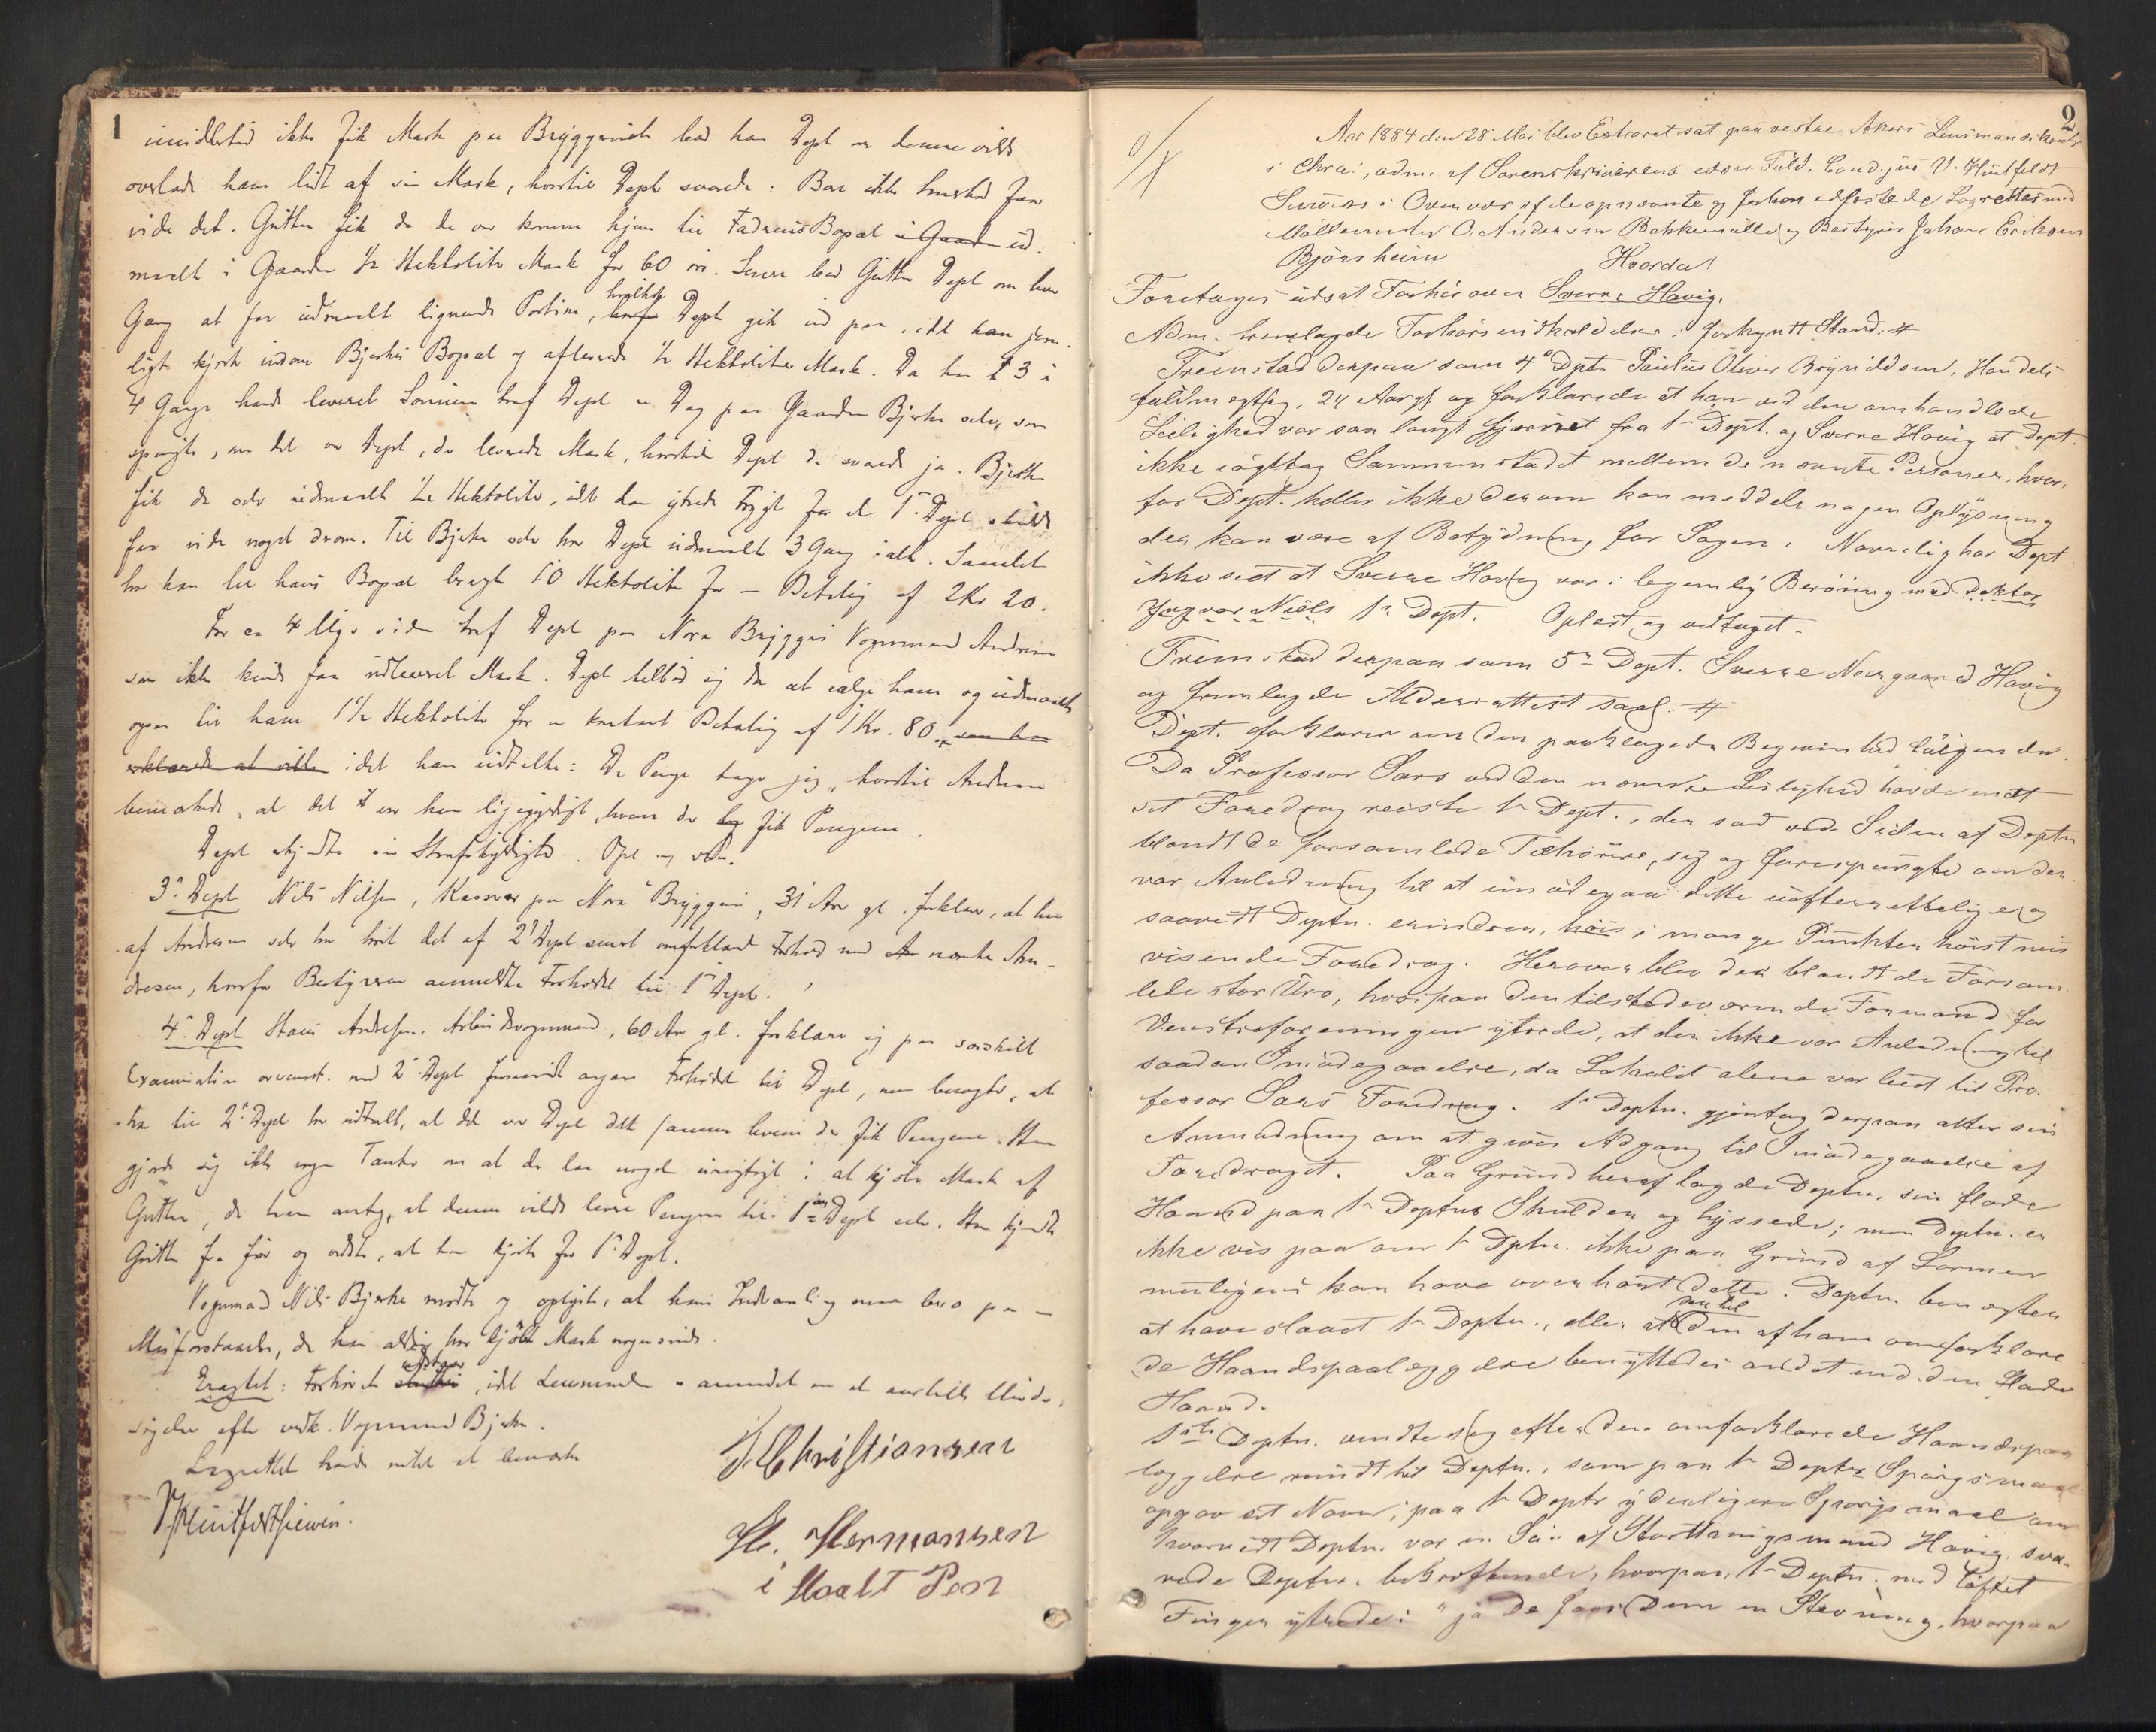 1
imidlertid ikke fik Mask paa Bryggeriet bad han Dept om denne vilde
overlade ham lidt af sin Mask, hvortil Dept svarede: Bare ikke husbd faar
vide det. Gutten fik da de var komne hjem til Faderens Bopæl i Gaarden ud
maalt i Gaarden ½ Hektoliter Mask for 60 øre. Senere bad Gutten Dept om hver
Gang at faa udmaalt lignende Portion, hvilket Dept gik ind paa, idet han jevn-
ligt kjørte indom Bjerkes Bopæl og afleverede ½ Hektoliter Mask. Da han 3 à
4 Gange havde leveret Sønnen traf Dept en Dag paa Gaarden Bjerke selv, som
spurgte, om det var Dept, der leverede Mask, hvortil Dept da svarede ja. Bjerke
fik da selv udmaalt ½ Hektoliter, idet han ytrede Frygt for at 1ste Dept skulde
faa vide noget derom. Til Bjerke selv har Dept udmaalt 3 Gang ialt. Samlet
har han til hans Bopæl bragt 10 Hektoliter for en Betaling af 2 Kr 20.
For ca 4 Uger siden traf Dept paa Nora Bryggeri Vognmand Andresen
som ikke kunde faa udleveret Mask. Dept tilbød sig da at sælge ham og udmaalte
ogsaa til ham 1½ Hektoliter for en kontant Betaling af 1 Kr. 80, som han
erklærede at ville idet han udtalte: De Penge tager jeg, hvortil Andresen
bemærkede, at det var ham ligegyldigt, hvem der fik Pengene.
Dept erkjendte sin Strafskyldighed. Opl og vedt.
3die Dept Nils Nilsen, Kasserer paa Nora Bryggeri, 31 Aar gl. forklarer, at han
af Andresen selv har hørt det af 2det Dept senest omforklarede Forhold med nævnte An-
dresen, hvorfor Bestyreren anmeldte Forholdet til 1ste Dept.
4de Dept Hans Andresen, Arbeidsvognmand, 60 Aar gl. forklarer sig paa særskilt
Examination overensst. med 2det Dept forsaavidt angaar Forholdet til Dept, men benegter, at
han til 2det Dept har udtalt, at det var Dept det samme hvem der fik Pengene. Han
gjorde sig ikke nogen Tanke om at der laa noget urigtigt i at kjøbe Mask af
Gutten, da han antog, at denne vilde levere Pengene til 1ste Dept selv. Han kjendte
Gutten fra før og vidste, at han kjørte for 1ste Dept.
Vognmand Nils Bjerke mødte og oplyste, at hans Indkaldelse maa bero paa en
Misforstaaelse, da han aldrig har kjøbt Mask nogensinde.
Eragtet: Forhøret udstaar, idet Lensmanden anmodet om at anstille Under-
søgelse efter vedk. Vognmand Bjerke.
Lagrettet havde intet at bemærke
V. Huitfeldt Sieverts. J. Christiansen
H. Hermansen
i Haalt Pen
2
Aar 1884 den 28 Mai blev Extraret sat paa vestre Akers Lensmandskontor
i Chra:, adm. af Sorenskriverens edsv. Fuld. Cand. jur. V. Huitfeldt
Sieverts i Overvær af de opnævnte og forhen edfæstede Lagrettesmænd
Møllemester O. Andersen Bakkemølle og Bestyrer Johan Erikson
Björsheim Hvorda!
Foretages udsat Forhør over Sverre Havig.
Adm. fremlagde Forhørsindkaldelse i forkyndt Stand. #
Fremstod derpaa som 4de Dptn Paulus Oliver Brynildsen, Handels-
fuldmægtig, 24 Aargl og forklarede at han ved den omhandlede
Leilighed var saa langt fjernet fra 1ste Dept. og Sverre Havig at Dept.
ikke iagttog Sammenstødet mellem de nævnte Personer, hvor-
for Dept. heller ikke derom kan meddele nogen Oplysning
der kan være af Betydning for Sagen. Navnlig har Dept
ikke seet at Sverre Havig var i legemlig Berøring med Doktor
Yngvar Niels 1ste Dept. Oplæst og vedtaget.
Fremstod derpaa som 5te Dept. Sverre Norgaard Havig
og fremlagde Aldersattest saal: #
Dept. forklarer om den paaklagede Begivenhed følgende.
Da Professor Sars ved den nævnte Leilighed havde endt
sit Foredrag reiste 1ste Dept., der sad ved Siden af Deptn
blandt de forsamlede Tilhørere, sig og forespurgte om der
var Anledning til at imødegaa dette uefterrettelige og
saavidt Deptn. erindrer, høis i mange Punkter høist mis
visende Foredrag. Herover blev der blandt de Forsam-
lede stor Uro, hvorpaa den tilstedeværende Formand for
Venstreforeningen ytrede, at der ikke var Anledning til
saadan Imødegaaelse, da Lokalet alene var leiet til Pro-
fessor Sars Foredrag. 1ste Deptn. gjentog derpaa atter sin
Anmodning om at gives Adgang til Imødegaaelse af
Foredraget. Paa Grund heraf lagde Deptn. sin flade
Haand paa 1ste Deptns Skulder og hyssede; men Deptn. er
ikke vis paa om 1ste Dptn. ikke paa Grund af Larmen
muligens kan have overhørt dette. Deptn. benegter
at have slaaet 1ste Deptn., eller at der til den af ham omforklare
de Haandspaalæggelse benyttedes andet end den flade
Haand.
1ste Deptn. vendte sig efter den omforklarede Haandspaa
læggelse rundt til Deptn., som paa 1ste Deptns Spørgsmaal
opgav sit Navn; paa 1ste Deptns yderligere Spørgsmaal om
hvorvidt Deptn. var en Søn af Storthingsmand Havig, sva-
rede Deptn. bekræftende, hvorpaa 1ste Deptn. med løftet
Finger ytrede: "ja De faar Dem en Stevning, hvorpaa